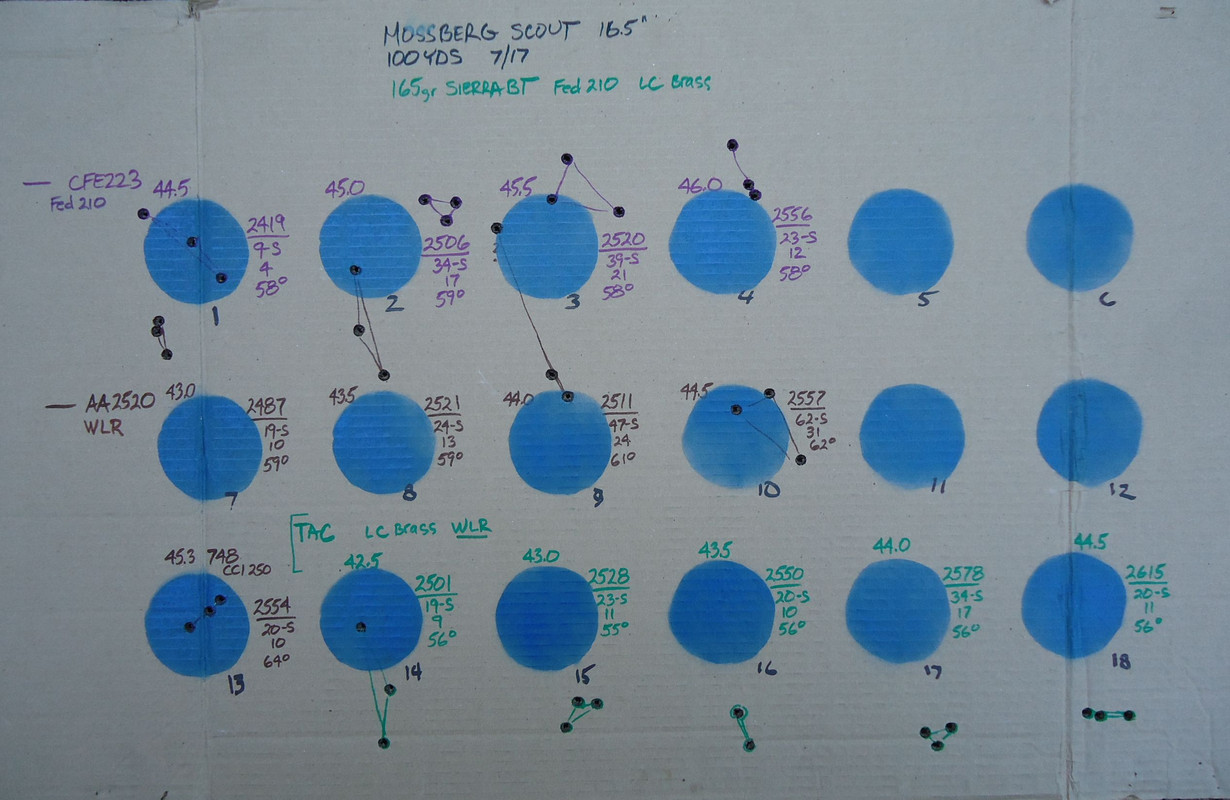 MOSSBERG SCOUT 16.5"
100YDS 7/17
165gr SIERRA BT Fed 210 LC Brass
— CFE223
Fed 210
44.5
2419
9-S
4
58°
1
45.0
2506
34-S
17
59°
2
45.5
2520
39-S
21
58°
3
46.0
2556
23-S
12
58°
4
5
6
— AA2520
WLR
43.0
2487
19-S
10
59°
7
43.5
2521
24-S
13
59°
8
44.0
2511
47-S
24
61°
9
44.5
2557
62-S
31
62°
10
11
12
45.3 748
CCI 250
2554
20-S
10
64°
13
TAC LC Brass WLR
42.5
2501
19-S
9
56°
14
43.0
2528
23-S
11
55°
15
43.5
2550
20-S
10
56°
16
44.0
2578
34-S
17
56°
17
44.5
2615
20-S
11
56°
18